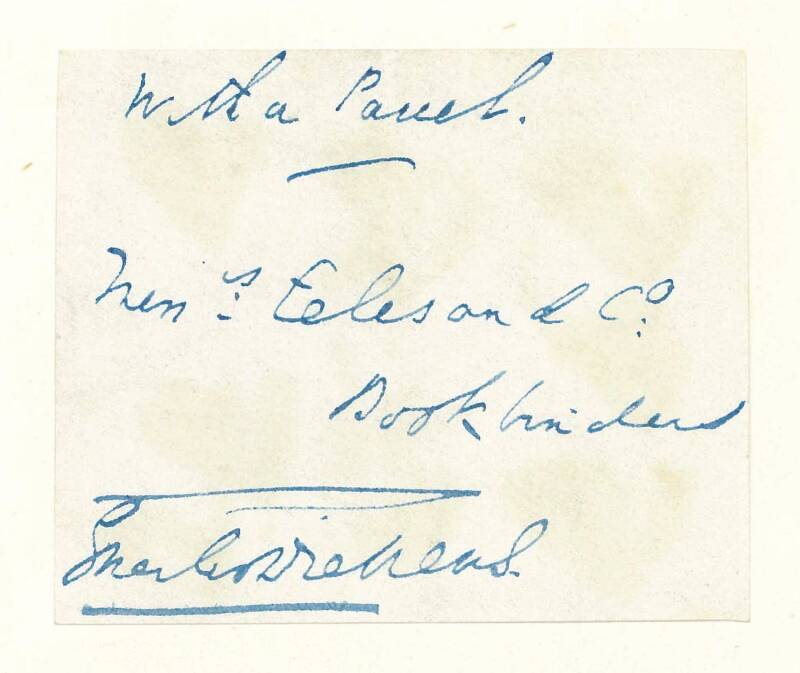 With a Parcel.
Mess.rs Eeles and Co.
Bookbinders
Charles Dickens.